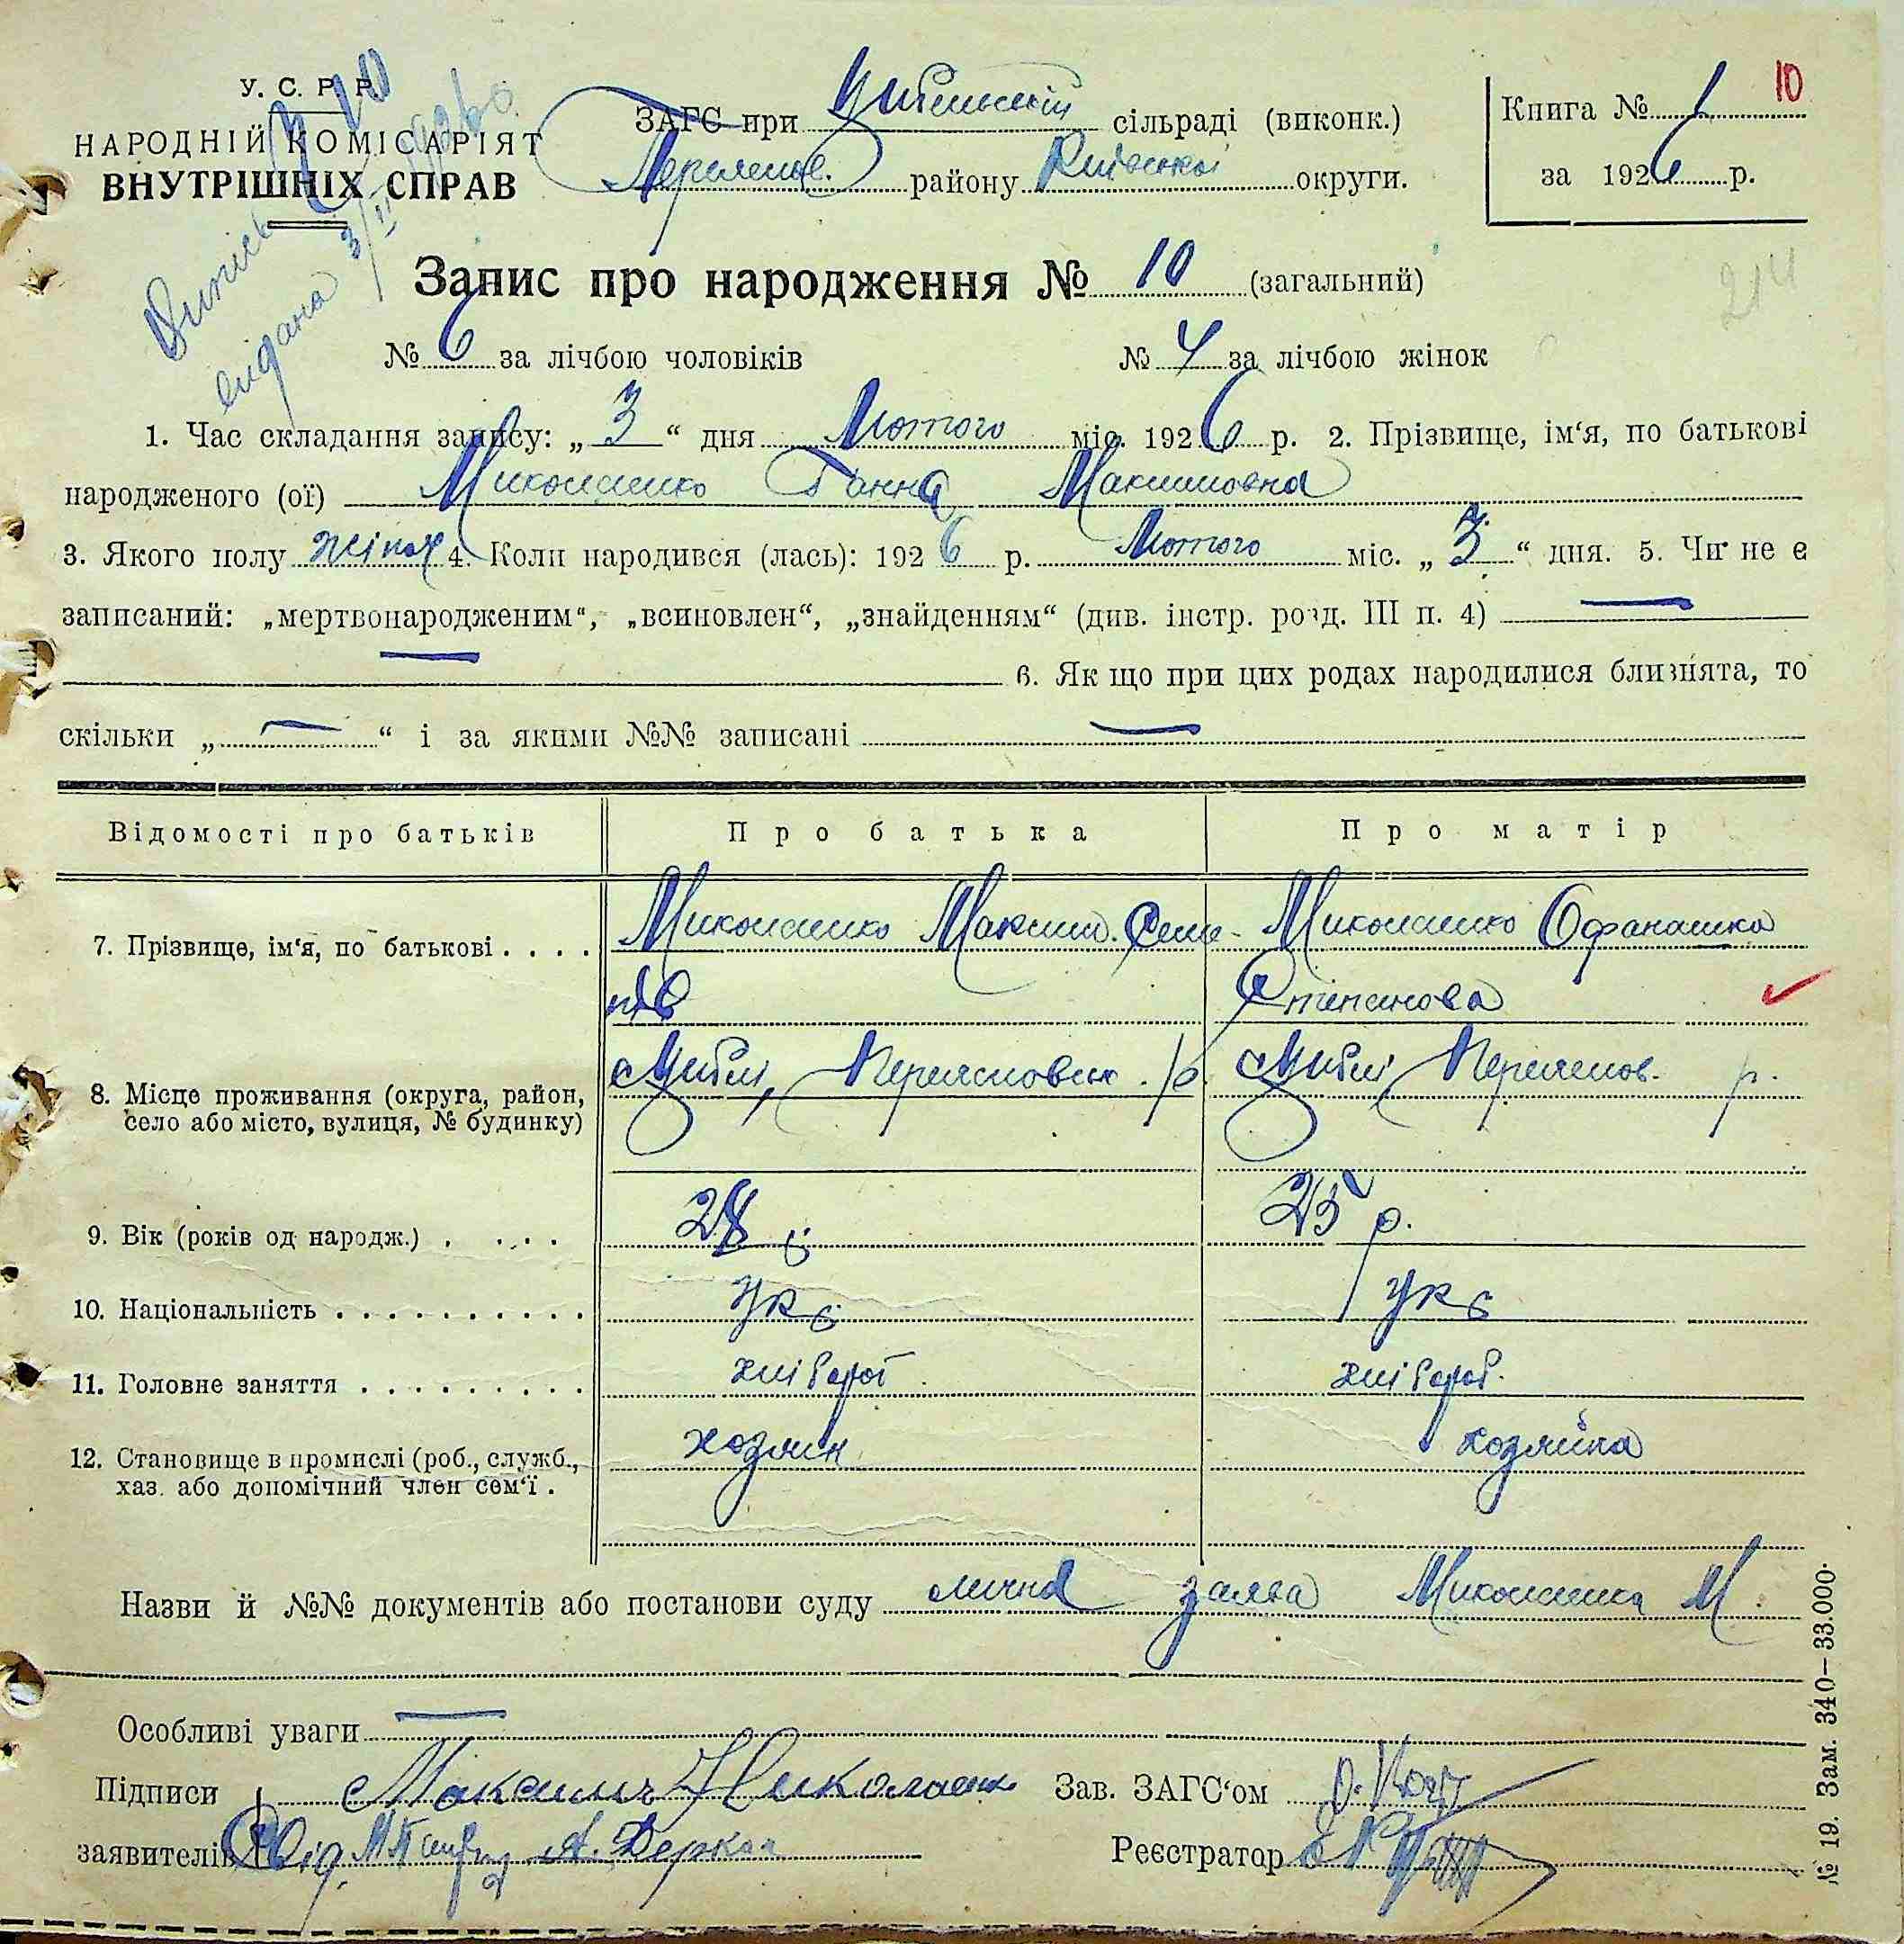 У. С. Р. Р.
НАРОДНІЙ КОМІСАРІЯТ
ВНУТРІШНІХ СПРАВ
ЗАГС при сільраді (виконк.)
району Київської округи.
Книга №
10
за 1926 р.
Випись
видана 3/II
Запис про народження № 10 (загальний)
214
№ 6 за лічбою чоловіків № 4 за лічбою жінок
1. Час складання запису: „ 3 “ дня Лютого міс. 1926 р. 2. Прізвище, ім‘я, по батькові
народженого (ої) Миколаенко Ганна Максимовна
3. Якого полу жіноч 4. Коли народився (лась): 1926 р. Лютого міс. „ 3 “ дня. 5. Чи не є
записаний: „мертвонародженим“, „всиновлен“, „знайденням“ (див. інстр. розд. III п. 4) —
— 6. Як що при цих родах народилися близнята, то
скільки „ — “ і за якими №№ записані —
Відомості про батьків Про батька Про матір
7. Прізвище, ім‘я, по батькові . . . . Миколаенко Максим Миколаенко
Степанова
8. Місце проживання (округа, район, Циблі, Переяславськ. р. Циблі Переяслов. р.
село або місто, вулиця, № будинку)
9. Вік (років од народж.) . . . . . 28 25 р.
10. Національність . . . . . . . . . . Укр Укр
11. Головне заняття . . . . . . . . . хлібороб хлібороб.
12. Становище в промислі (роб., служб., хозяин хозяйка
хаз. або допомічний член сем‘ї .
Назви й №№ документів або постанови суду лична заява Миколаенка М.
Особливі уваги —
Підписи Максимъ Николаенко Зав. ЗАГС‘ом
заявителів А. Деркач Реєстратор
№ 19. Зам. 340–33.000.